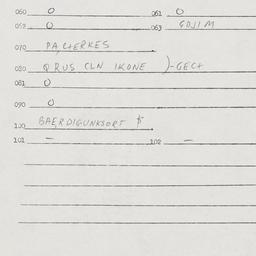 060 0 061 0
062 0 063 GOJIM
070 PA,CTERKES
080 QRUS CLN IKONE )-GECH
081 0
090 0
100 BAERDIGUNKSORT $
101 - 102 -